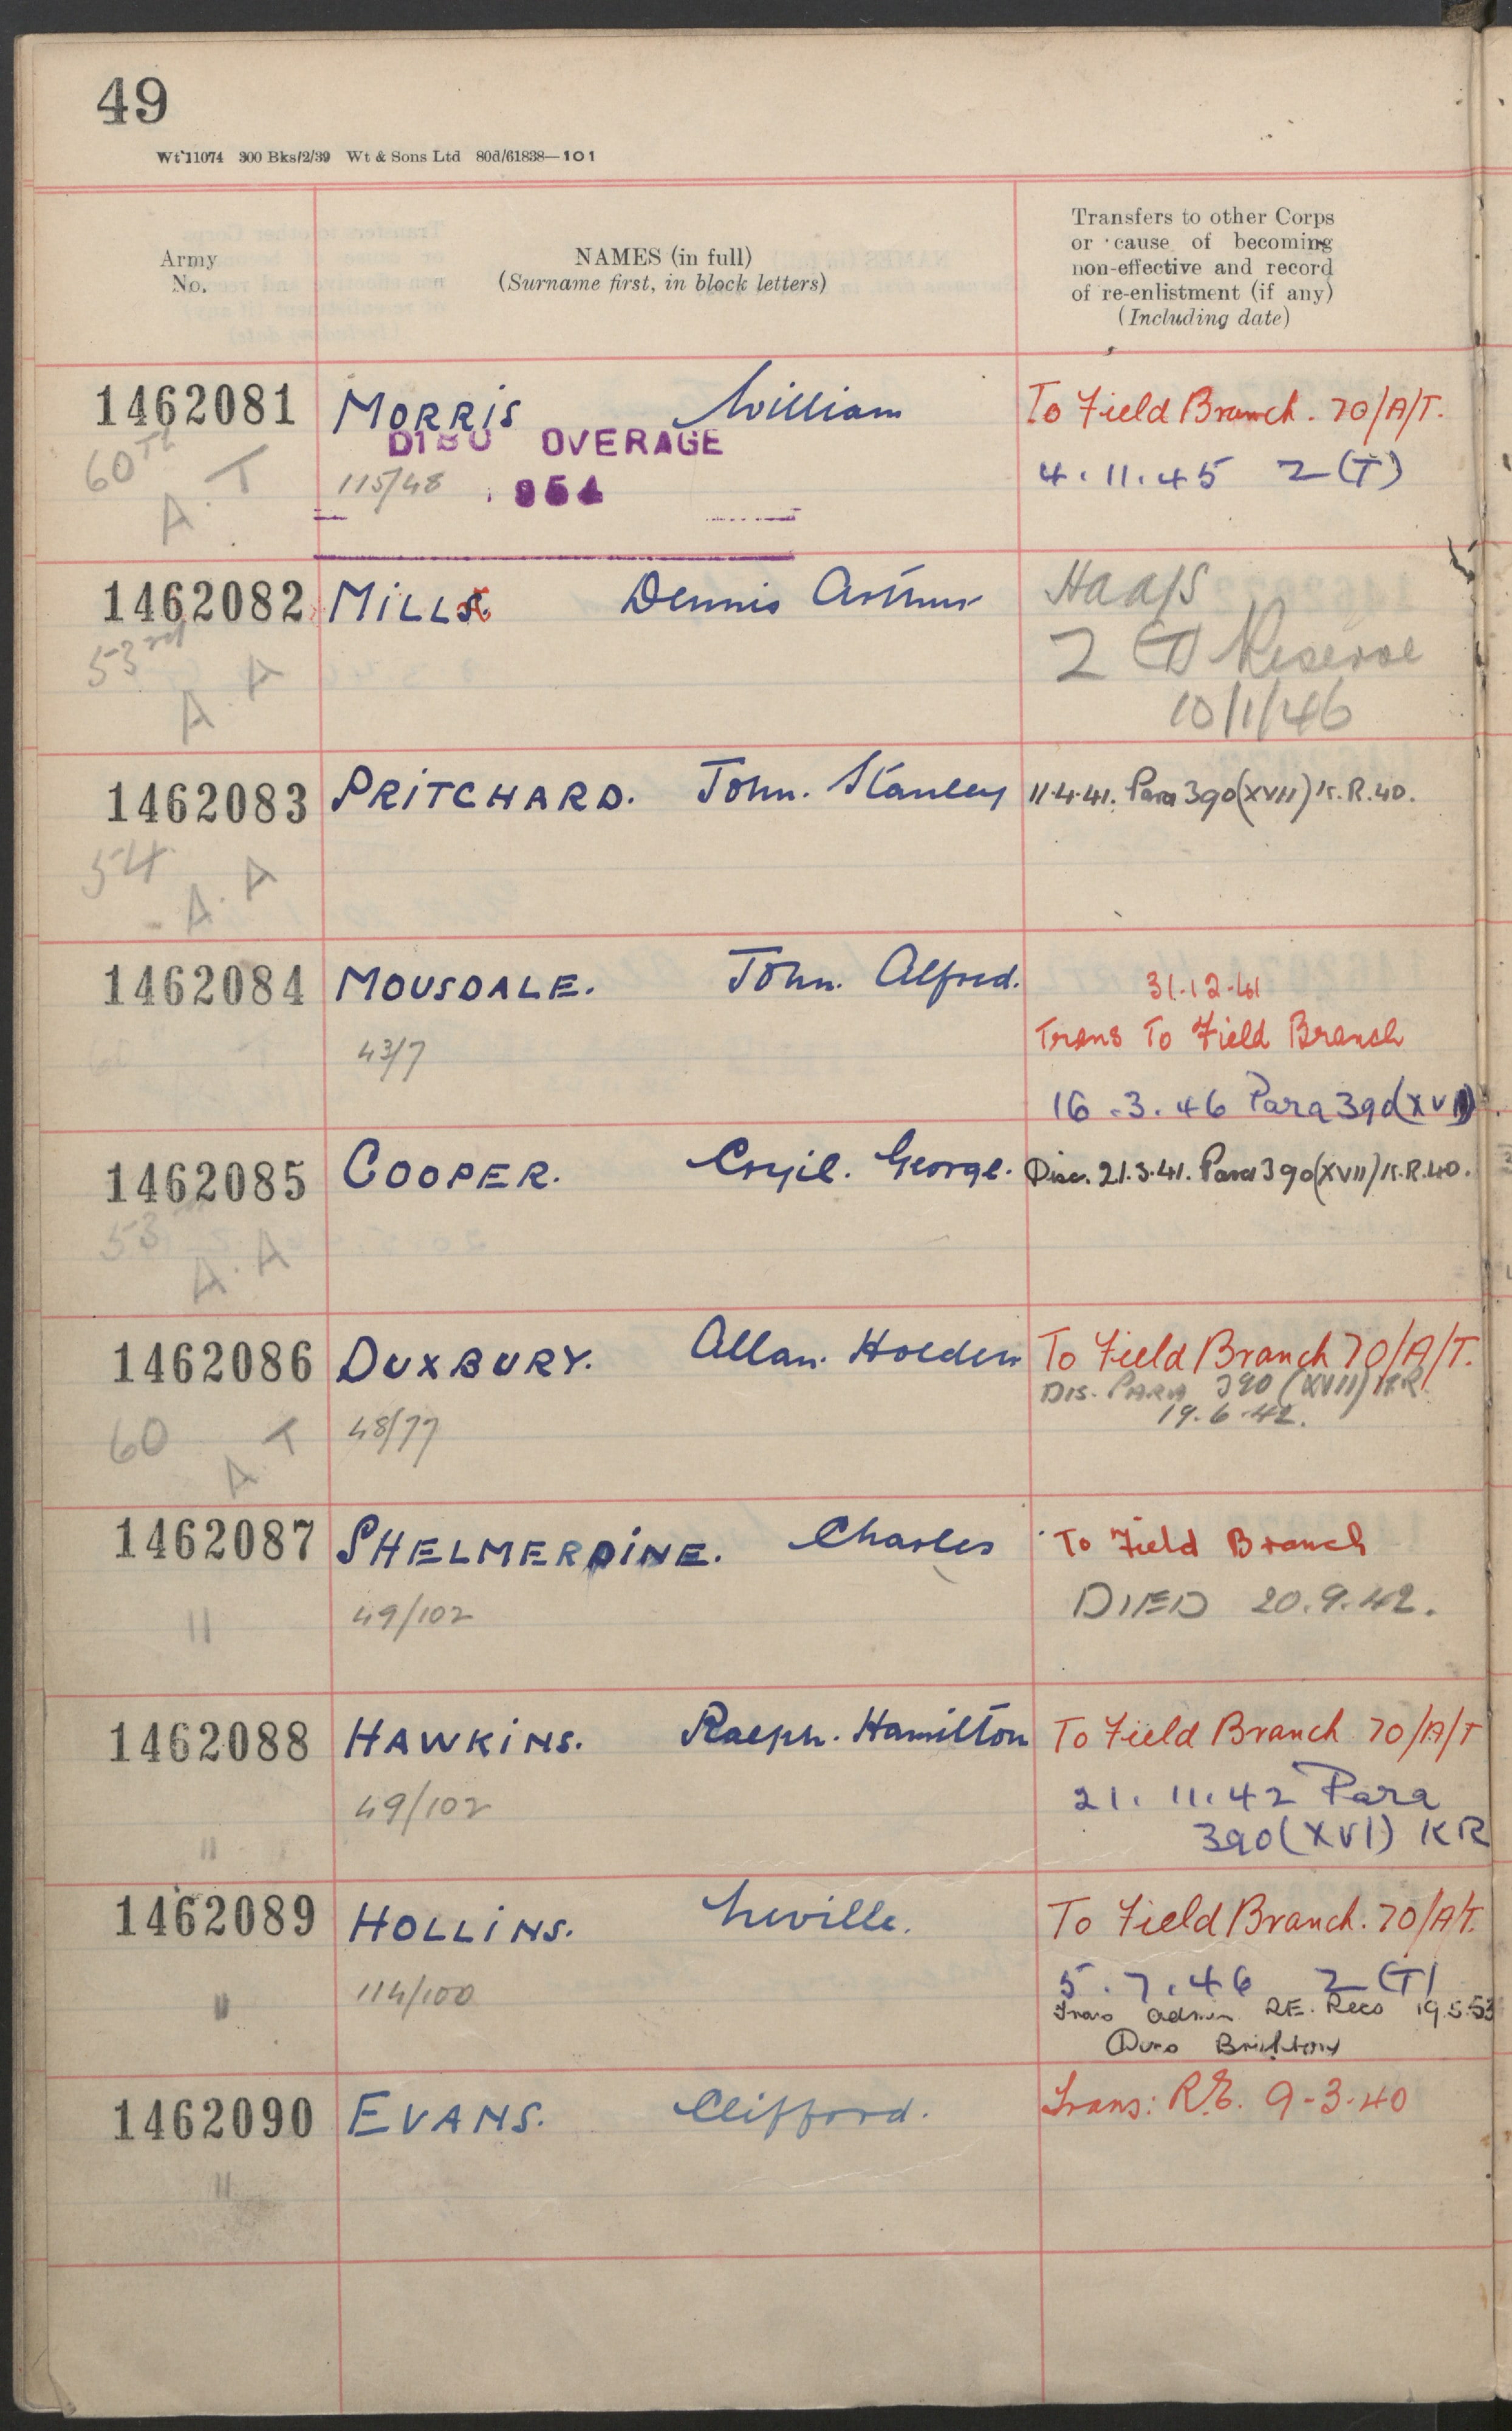 49
Wt 11074 300 Bks/2/39 Wt & Sons Ltd 80d/61838—101
Army
No.
NAMES (in full)
(Surname first, in block letters)
Transfers to other Corps
or cause of becoming
non-effective and record
of re-enlistment (if any)
(Including date)
1462081 MORRIS William To Field Branch. 70/A/T.
DISC OVERAGE
60th A.T 115/48 954 4.11.45 Z(T)
1462082 MILLS Dennis Arthur
53rd A.A Z (T) Reserve
10/1/46
1462083 PRITCHARD. John. Stanley 11.4.41. Para 390(XVII) K.R.40.
54 A.A
1462084 MOUSDALE. John. Alfred. 31.12.41
Trans To Field Branch
43/7
16.3.46 Para 390(XVI)
1462085 COOPER. Cryil. George. Disc. 21.3.41. Para 390(XVII) K.R.40.
53 A.A
1462086 DUXBURY. Allan. Holden To Field Branch 70/A/T.
DIS. PARA 390 (XVII) KR.
60 A.T 48/77 19.6.42.
1462087 SHELMERDINE. Charles To Field Branch
" 49/102 DIED 20.9.42.
1462088 HAWKINS. Ralph. Hamilton To Field Branch 70/A/T
" 49/102 21.11.42 Para
390(XVI) KR
1462089 HOLLINS. Neville. To Field Branch. 70/A/T.
" 114/100 5.7.46 Z (T)
Trans admin RE. Recs 19.5.53
Brighton
1462090 EVANS. Clifford. Trans: R.E. 9-3-40
"